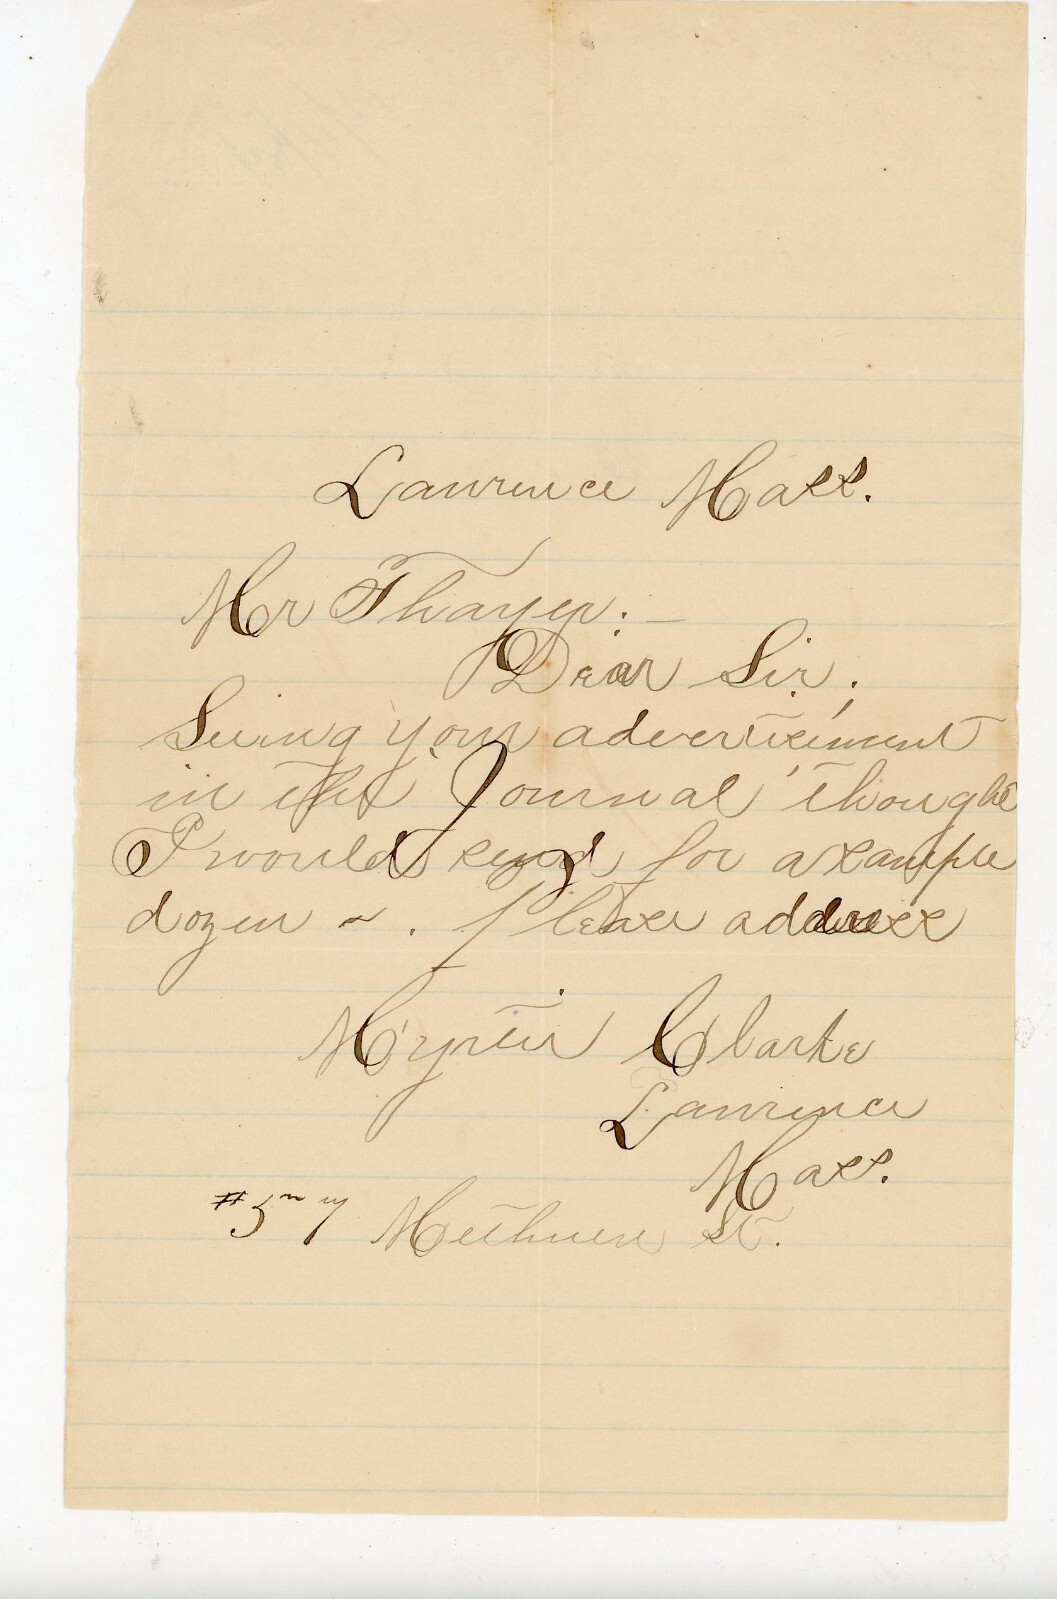 Lawrence Mass.
Mr Thayer. —
Dear Sir.
Seeing your advertisement
in the Journal thought
I would send for a sample
dozen ~ . Please address
Clarke
Lawrence
Mass.
Methuen St.